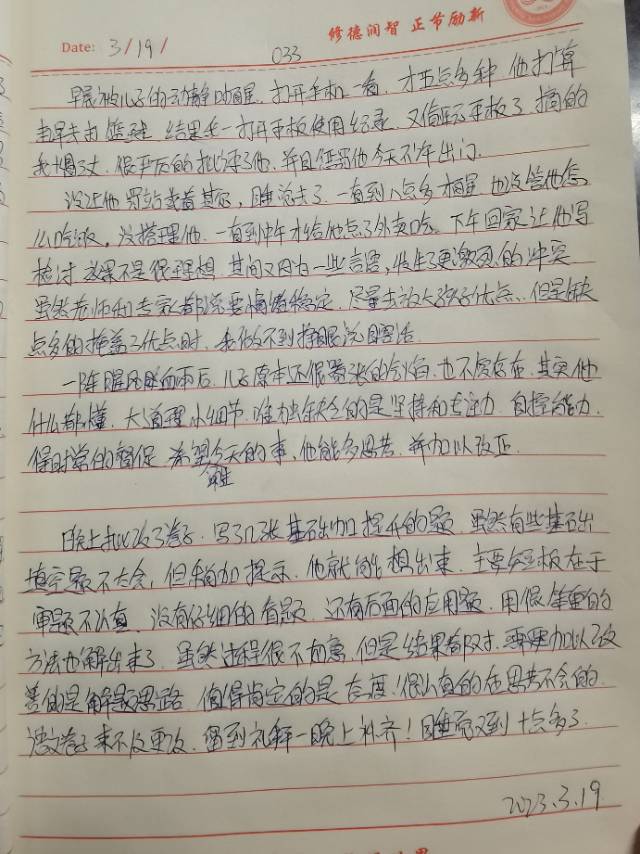 修德润智 正节励新
Date: 3/19/
033
早晨被儿子的动静吵醒,打开手机一看,才五点多钟,他打算
去早去打篮球,结果我一打开平板使用纪录,又偷玩平板了,搞的
我火冒三丈,很严厉的批评了他,并且惩罚他今天不许出门。
没让他罚站或者其它,睡觉去了,一直到八点多才醒,也没管他怎
么吃饭,没搭理他,一直到中午才给他点了外卖吃,下午回家让他写
检讨,效果不是很理想,其间又因为一些言语,发生了更激烈的冲突
虽然老师和专家都说要情绪稳定,尽量去放大孩子优点,但是缺
点多的掩盖了优点时,我做不到睁眼说瞎话
一阵腥风血雨后,儿子原本还很嚣张的气焰,也不复存在,其实他
什么都懂,大道理小细节,唯独缺乏的是坚持和专注力,自控能力,
得时常的督促,希望今天的事,他能多思考,并加以改正。
晚上批改了卷子,写了几张基础加提升的题,虽然有些基础
填空题不太会,但稍加提示,他就能想出来,主要的在于
审题不认真,没有仔细的看题,还有后面的应用题,用很笨重的
方法也解出来了,虽然过程很不如意,但是结果都对,需要加以改
善的是解题思路,值得肯定的是态度!很认真的在思考不会的
语文卷子来不及更改,留到礼拜一晚上补齐!睡觉又到十点多了
2023.3.19